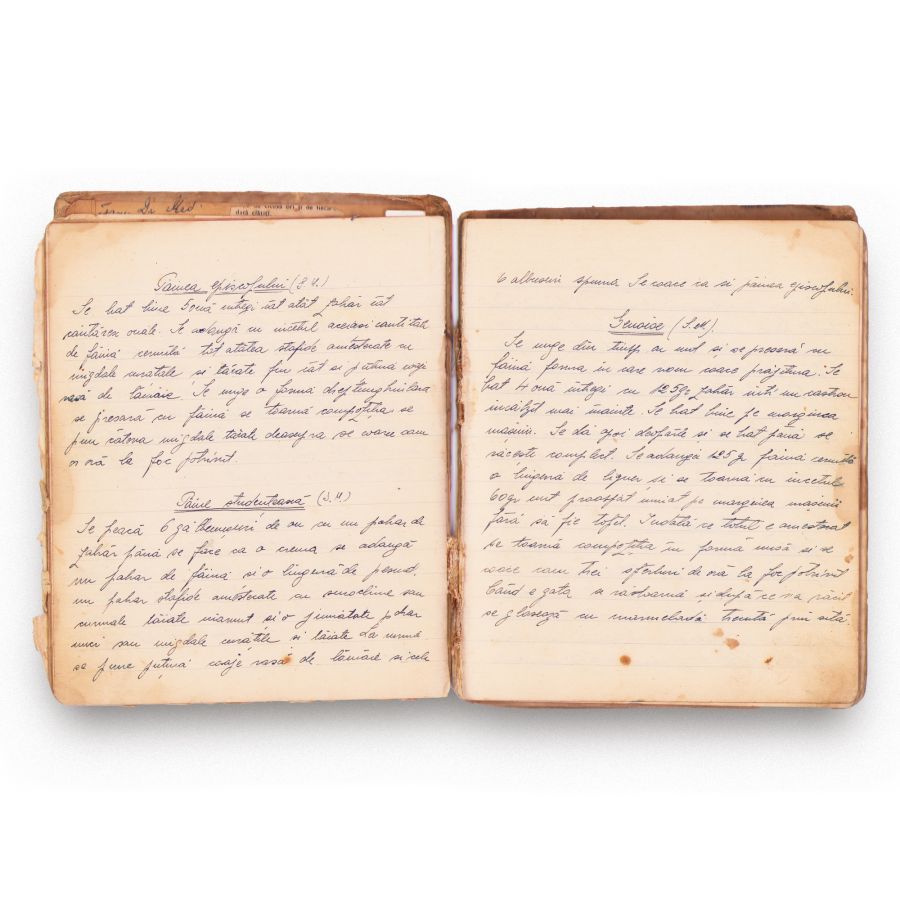 Form Dr. Med.
dată clăuți
Pâinea episcopului (S.M.)
Se bat bine 5 ouă întregi cât atât zahăr cât
cântăresc ouăle. Se adaugă cu încetul aceeași cantitate
de făină cernută tot atâtea stafide amestecate cu
migdale curatale si tăiate fin cât si puțină coajă
rasă de lămâie. Se unge o formă dreptunghiulara
se presară cu făină se toarnă compoziția se
pun câteva migdale tăiate deasupra se coace cam
o oră la foc potrivit.
Pâine studentească (S.M.)
Se freacă 6 gălbenușuri de ou cu un pahar de
zahăr până se face ca o crema se adaugă
un pahar de făină si o lingură de pesmet,
un pahar stafide amestecate cu smochine sau
curmale tăiate mărunt si o jumătate pahar
nuci sau migdale curățite si tăiate La urmă
se pune puțină coajă rasă de lămâie si cele
6 albusuri spumă Se coace ca si pâinea episcopului.
Genoise (S.M).
Se unge din timp cu unt și se presară cu
făină forma în care vom coace prăjitura. Se
bat 4 ouă întregi cu 125 gr zahăr într-un castron
încălzit mai înainte. Se bat bine pe marginea
mașinii. Se dă apoi deoparte si se bat până se
răcește complect. Se adaugă 125 gr făină cernută
o lingură de liquer si se toarnă cu încetul
60 gr unt proaspăt muiat pe marginea mașinii
fără să fie topit. Îndată ce totul e amestecat
se toarnă compoziția în formă unsă si se
coace cam trei sferturi de oră la foc potrivit
Când e gata se răstoarnă și după ce s-a răcit
se glasează cu marmeladă trecută prin sită.